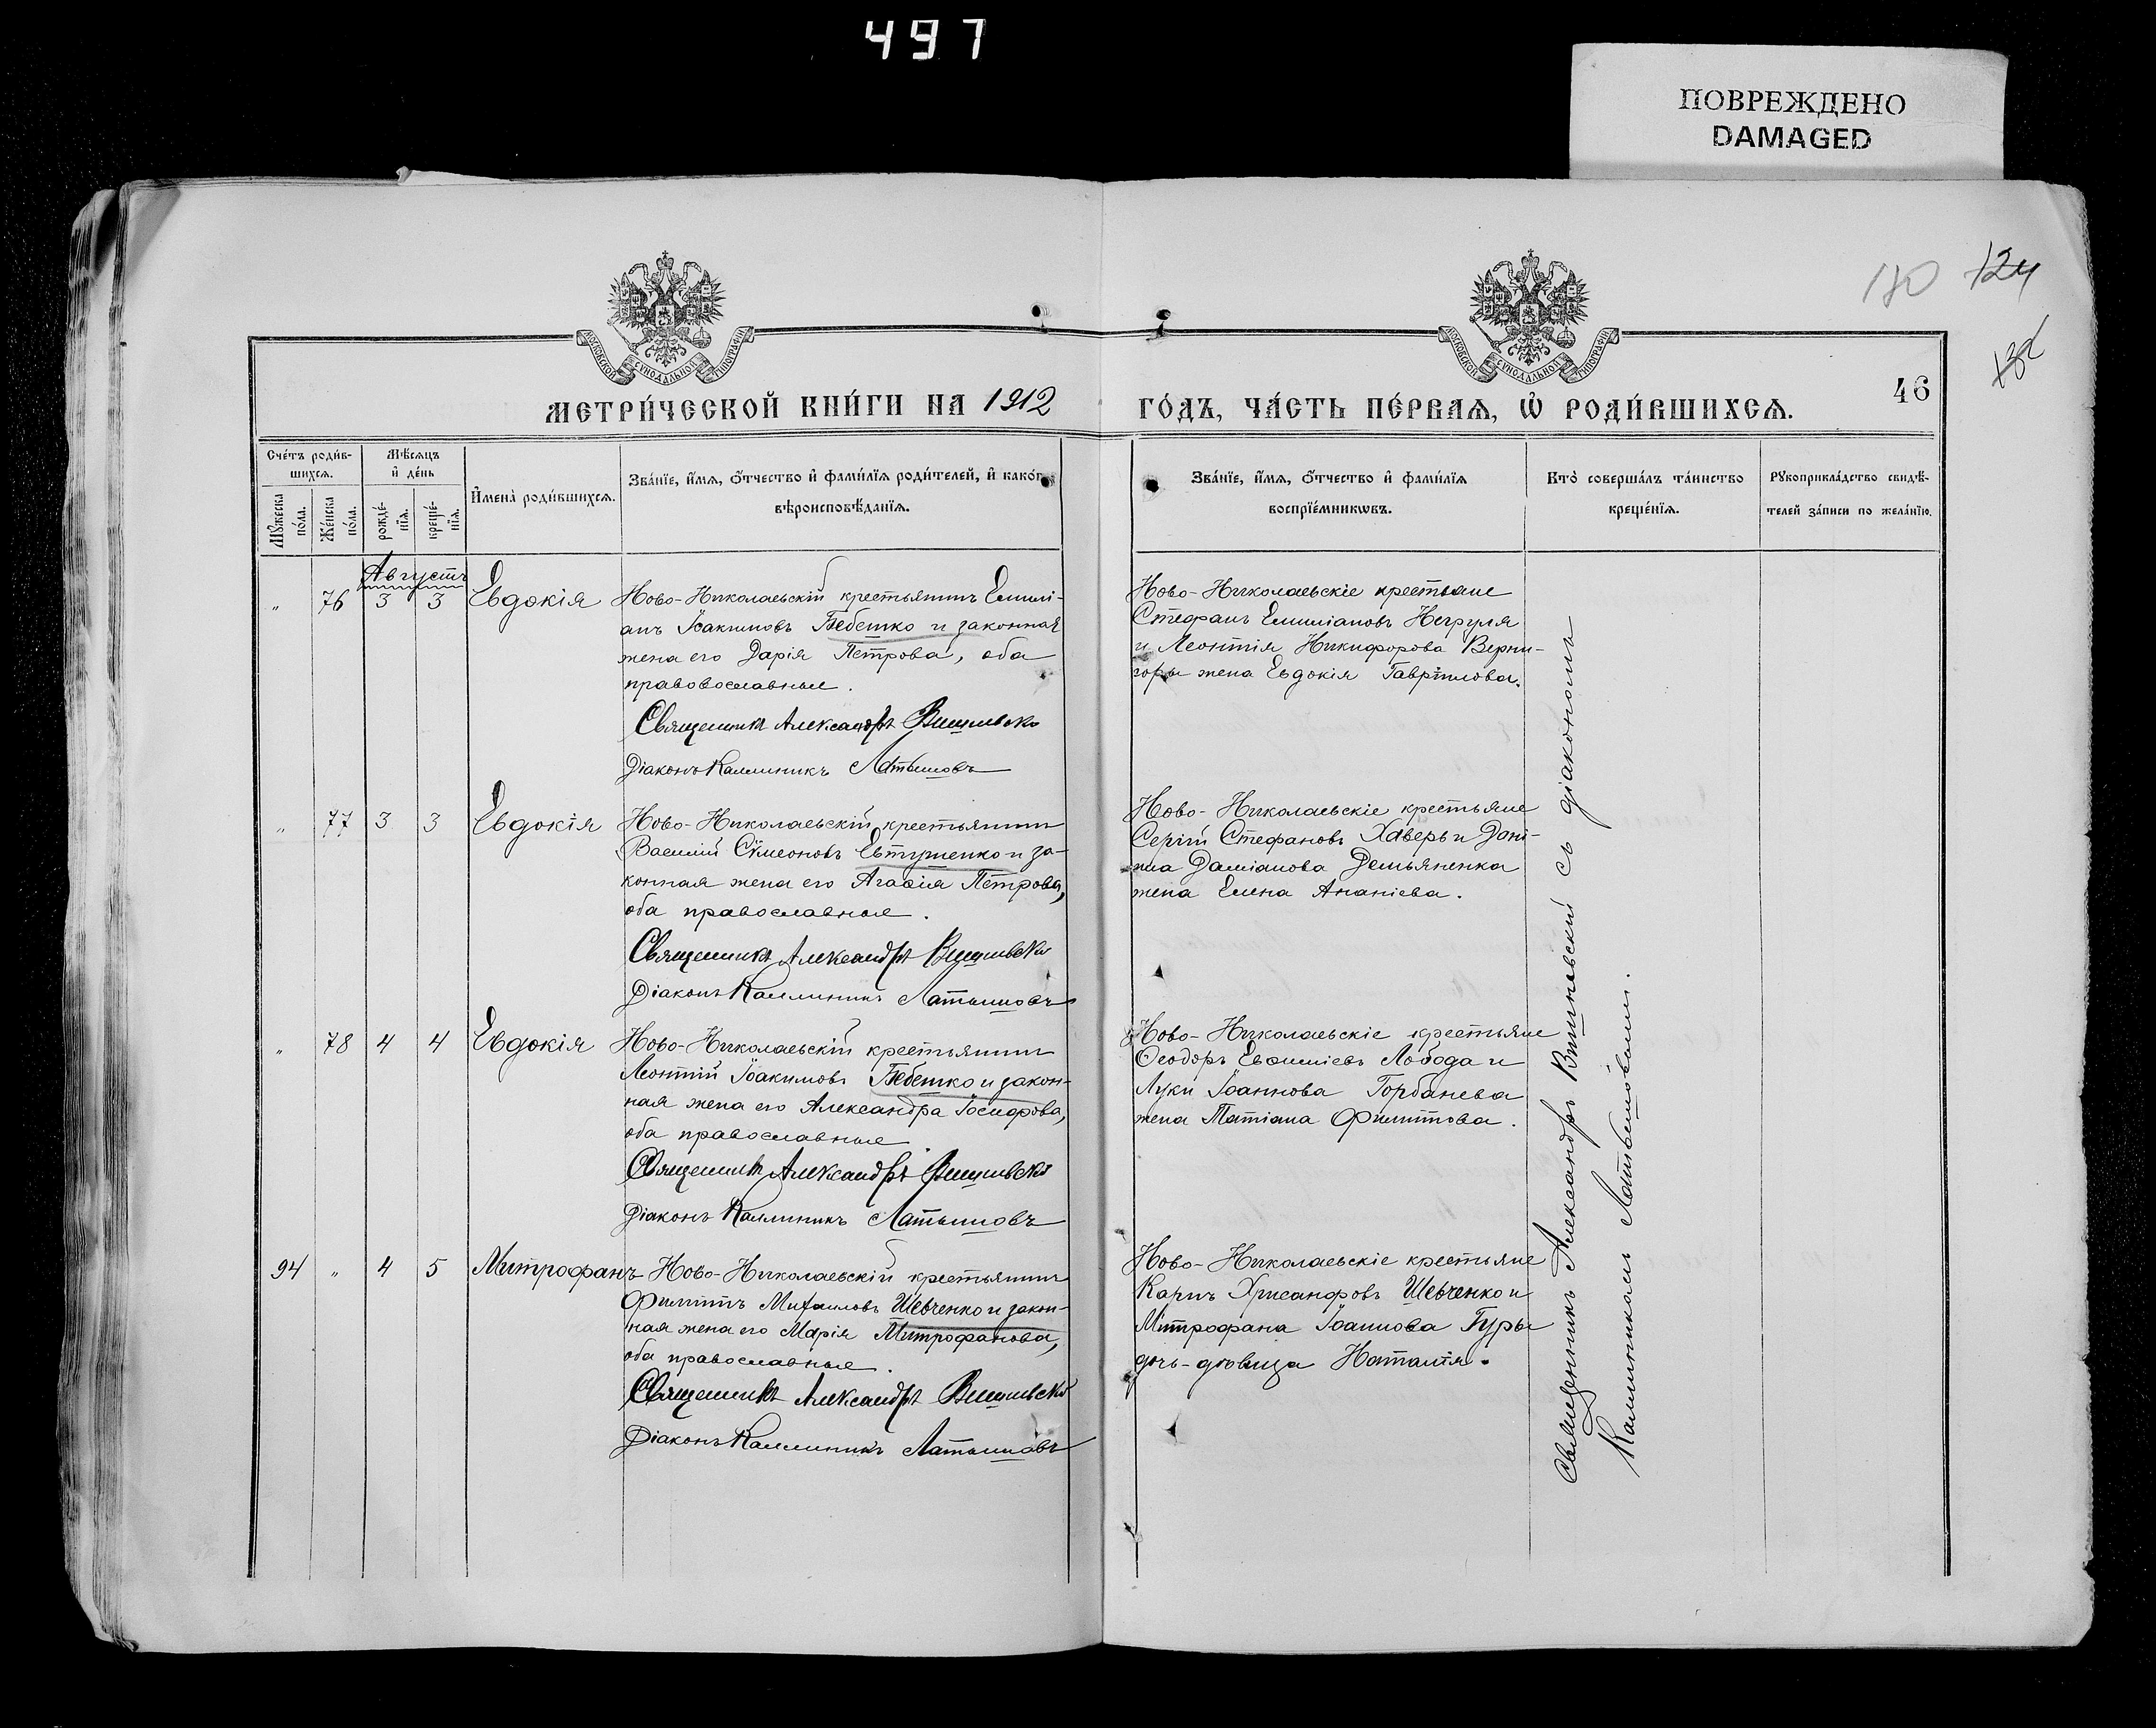 497
ПОВРЕЖДЕНО
DAMAGED
180 124
132
МОСКОВСКОЙ СѴНОДАЛЬНОЙ ТИПОГРАФІИ
МОСКОВСКОЙ СѴНОДАЛЬНОЙ ТИПОГРАФІИ
46
МЕТРИ́ЧЕСКОЙ КНИ́ГИ НА 1912
ГО́ДЪ, ЧА́СТЬ ПЕ́РВАѦ, Ѡ҆ РОДИ́ВШИХСѦ.
Сче́тъ роди́в-
шихсѧ.
Мꙋ́жеска по́ла.
Же́нска по́ла.
Мѣ́сѧцъ
и҆ де́нь
рожде́-
нїѧ.
креще́-
нїѧ.
И҆мена̀ роди́вшихсѧ.
Зва́нїе, и҆́мѧ, ѻ҆́тчество и҆ фами́лїѧ роди́телей, и҆ како́гѡ
вѣроисповѣ́данїѧ.
Зва́нїе, и҆́мѧ, ѻ҆́тчество и҆ фами́лїѧ
воспрїе́мникѡвъ.
Кто̀ соверша́лъ та́инство
креще́нїѧ.
Рꙋкоприкла́дство свидѣ́-
телей за́писи по жела́нїю.
Августъ
" 76 3 3 Евдокія
Ново-Николаевскій крестьянинъ Емилі-
анъ Іоакимовъ Бебешко и законная
жена его Дарія Петрова, оба
правовославные.
Священникъ Александръ Вишневскі
Діаконъ Каллиникъ Латышовъ
Ново-Николаевскіе крестьяне
Стефанъ Емиліановъ Негруля
и Леонтія Никифорова Верни-
горы жена Евдокія Гавріилова.
" 77 3 3 Евдокія
Ново-Николаевскій крестьянин
Василій Сѵмеоновъ Евтушенко и за-
конная жена его Агаѳія Петрова,
оба православные.
Священникъ Александръ Вишневскі
Діаконъ Каллиникъ Латышовъ
Ново-Николаевскіе крестьяне
Сергій Стефановъ Хаверь и Дані-
ила Даміанова Демьяненка
жена Елена Ананіева.
" 78 4 4 Евдокія
Ново-Николаевскій крестьянин
Леонтій Іоакимовъ Бебешко и закон-
ная жена его Александра Іосифова,
оба православные
Священникъ Александръ Вишневскі
Діаконъ Каллиникъ Латышовъ
Ново-Николаевскіе крестьяне
Ѳеодоръ Евѳиміевъ Лобода и
Луки Іоаннова Горбанева
жена Татіана Филиппова.
94 " 4 5 Митрофанъ
Ново-Николаевскій крестьянин
Филиппъ Михаиловъ Шевченко и закон-
ная жена его Марія Митрофанова,
оба православные.
Священникъ Александръ Вишневскі
Діаконъ Каллиникъ Латышовъ
Ново-Николаевскіе крестьяне
Карпъ Хрисанфовъ Шевченко и
Митрофана Іоаннова Гуры
дочь-дѣвица Наталія.
Священникъ Александръ Вишневскій съ діакономъ
Каллиникомъ Латышовымъ.